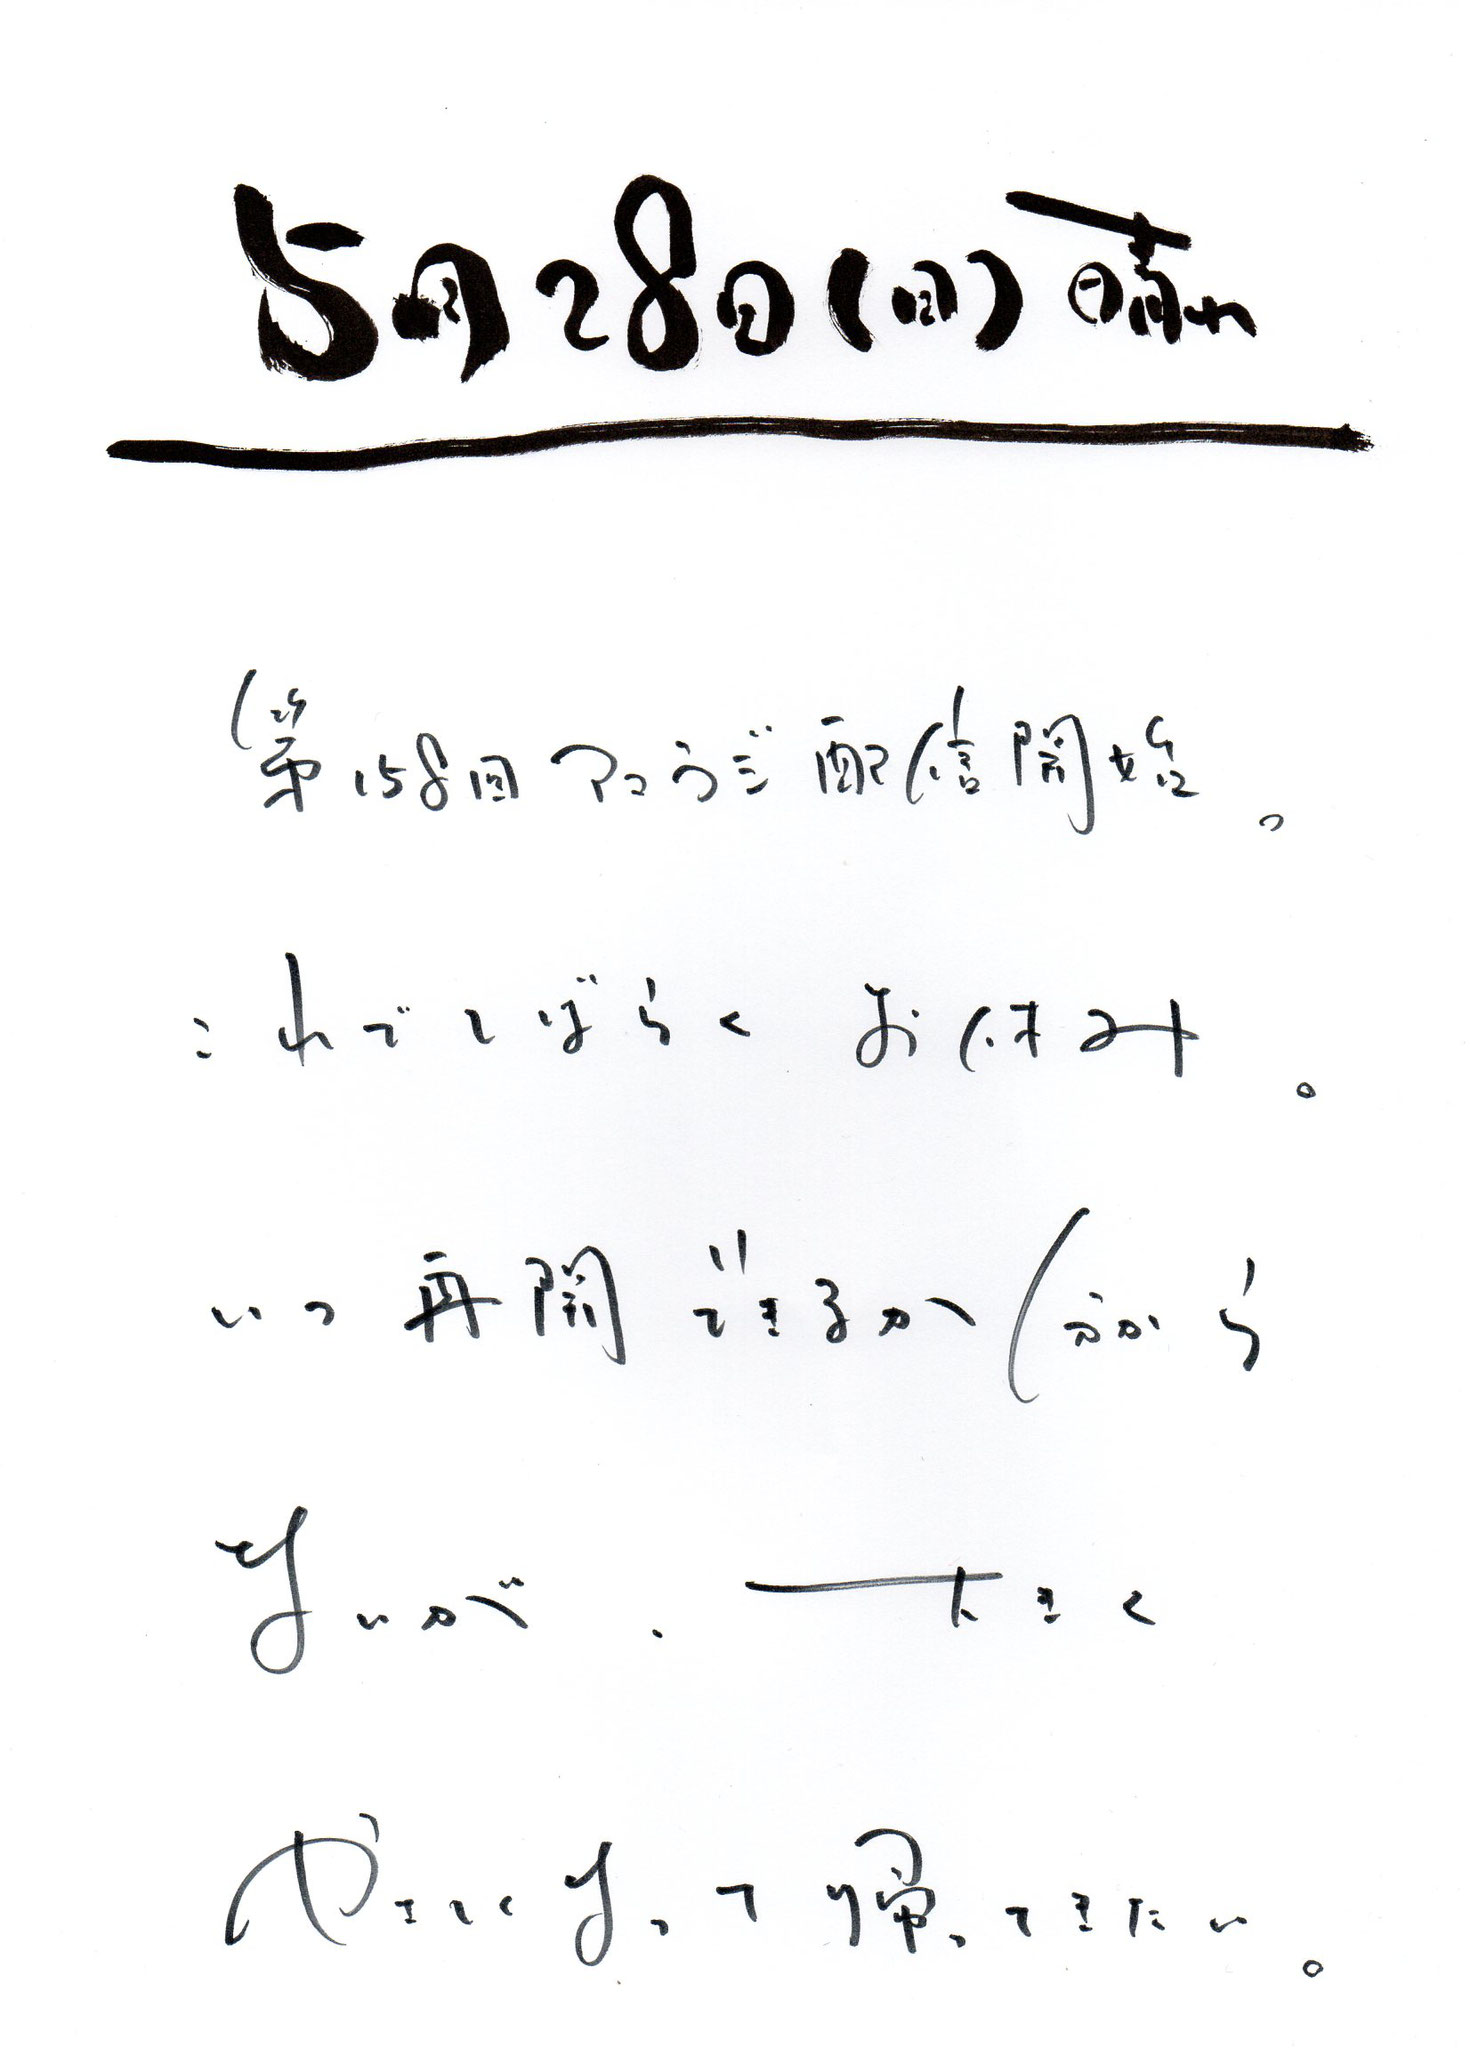 5月28日(日)晴れ
第158回アコラジ配信開始。
これでしばらくお休み。
いつ再開できるか分から
ないが、大きく
やさしくなって帰ってきたい。